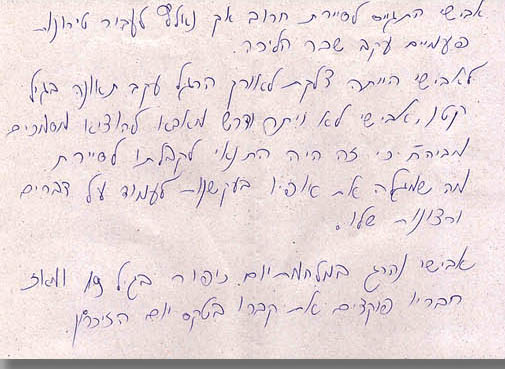 אבישי התגייס לסיירת חרוב אך נאלץ לעבור טירונות
פעמיים עקב שבר הליכה.
לאבישי הייתה צלקת לאורך הרגל עקב תאונה בגיל
קטן, אבישי לא ויתר ודרש מאבא להוציא מסמכים
מביה"ח כי זה היה התנאי לקבלתו לסיירת
מה שמגלה את אופיו בעקשנות לעמוד על דברים
ורצונות שלו.
אבישי נהרג במלחמת יום כיפור בגיל 19 ומאז
חבריו פוקדים את קברו בטקס יום הזיכרון.